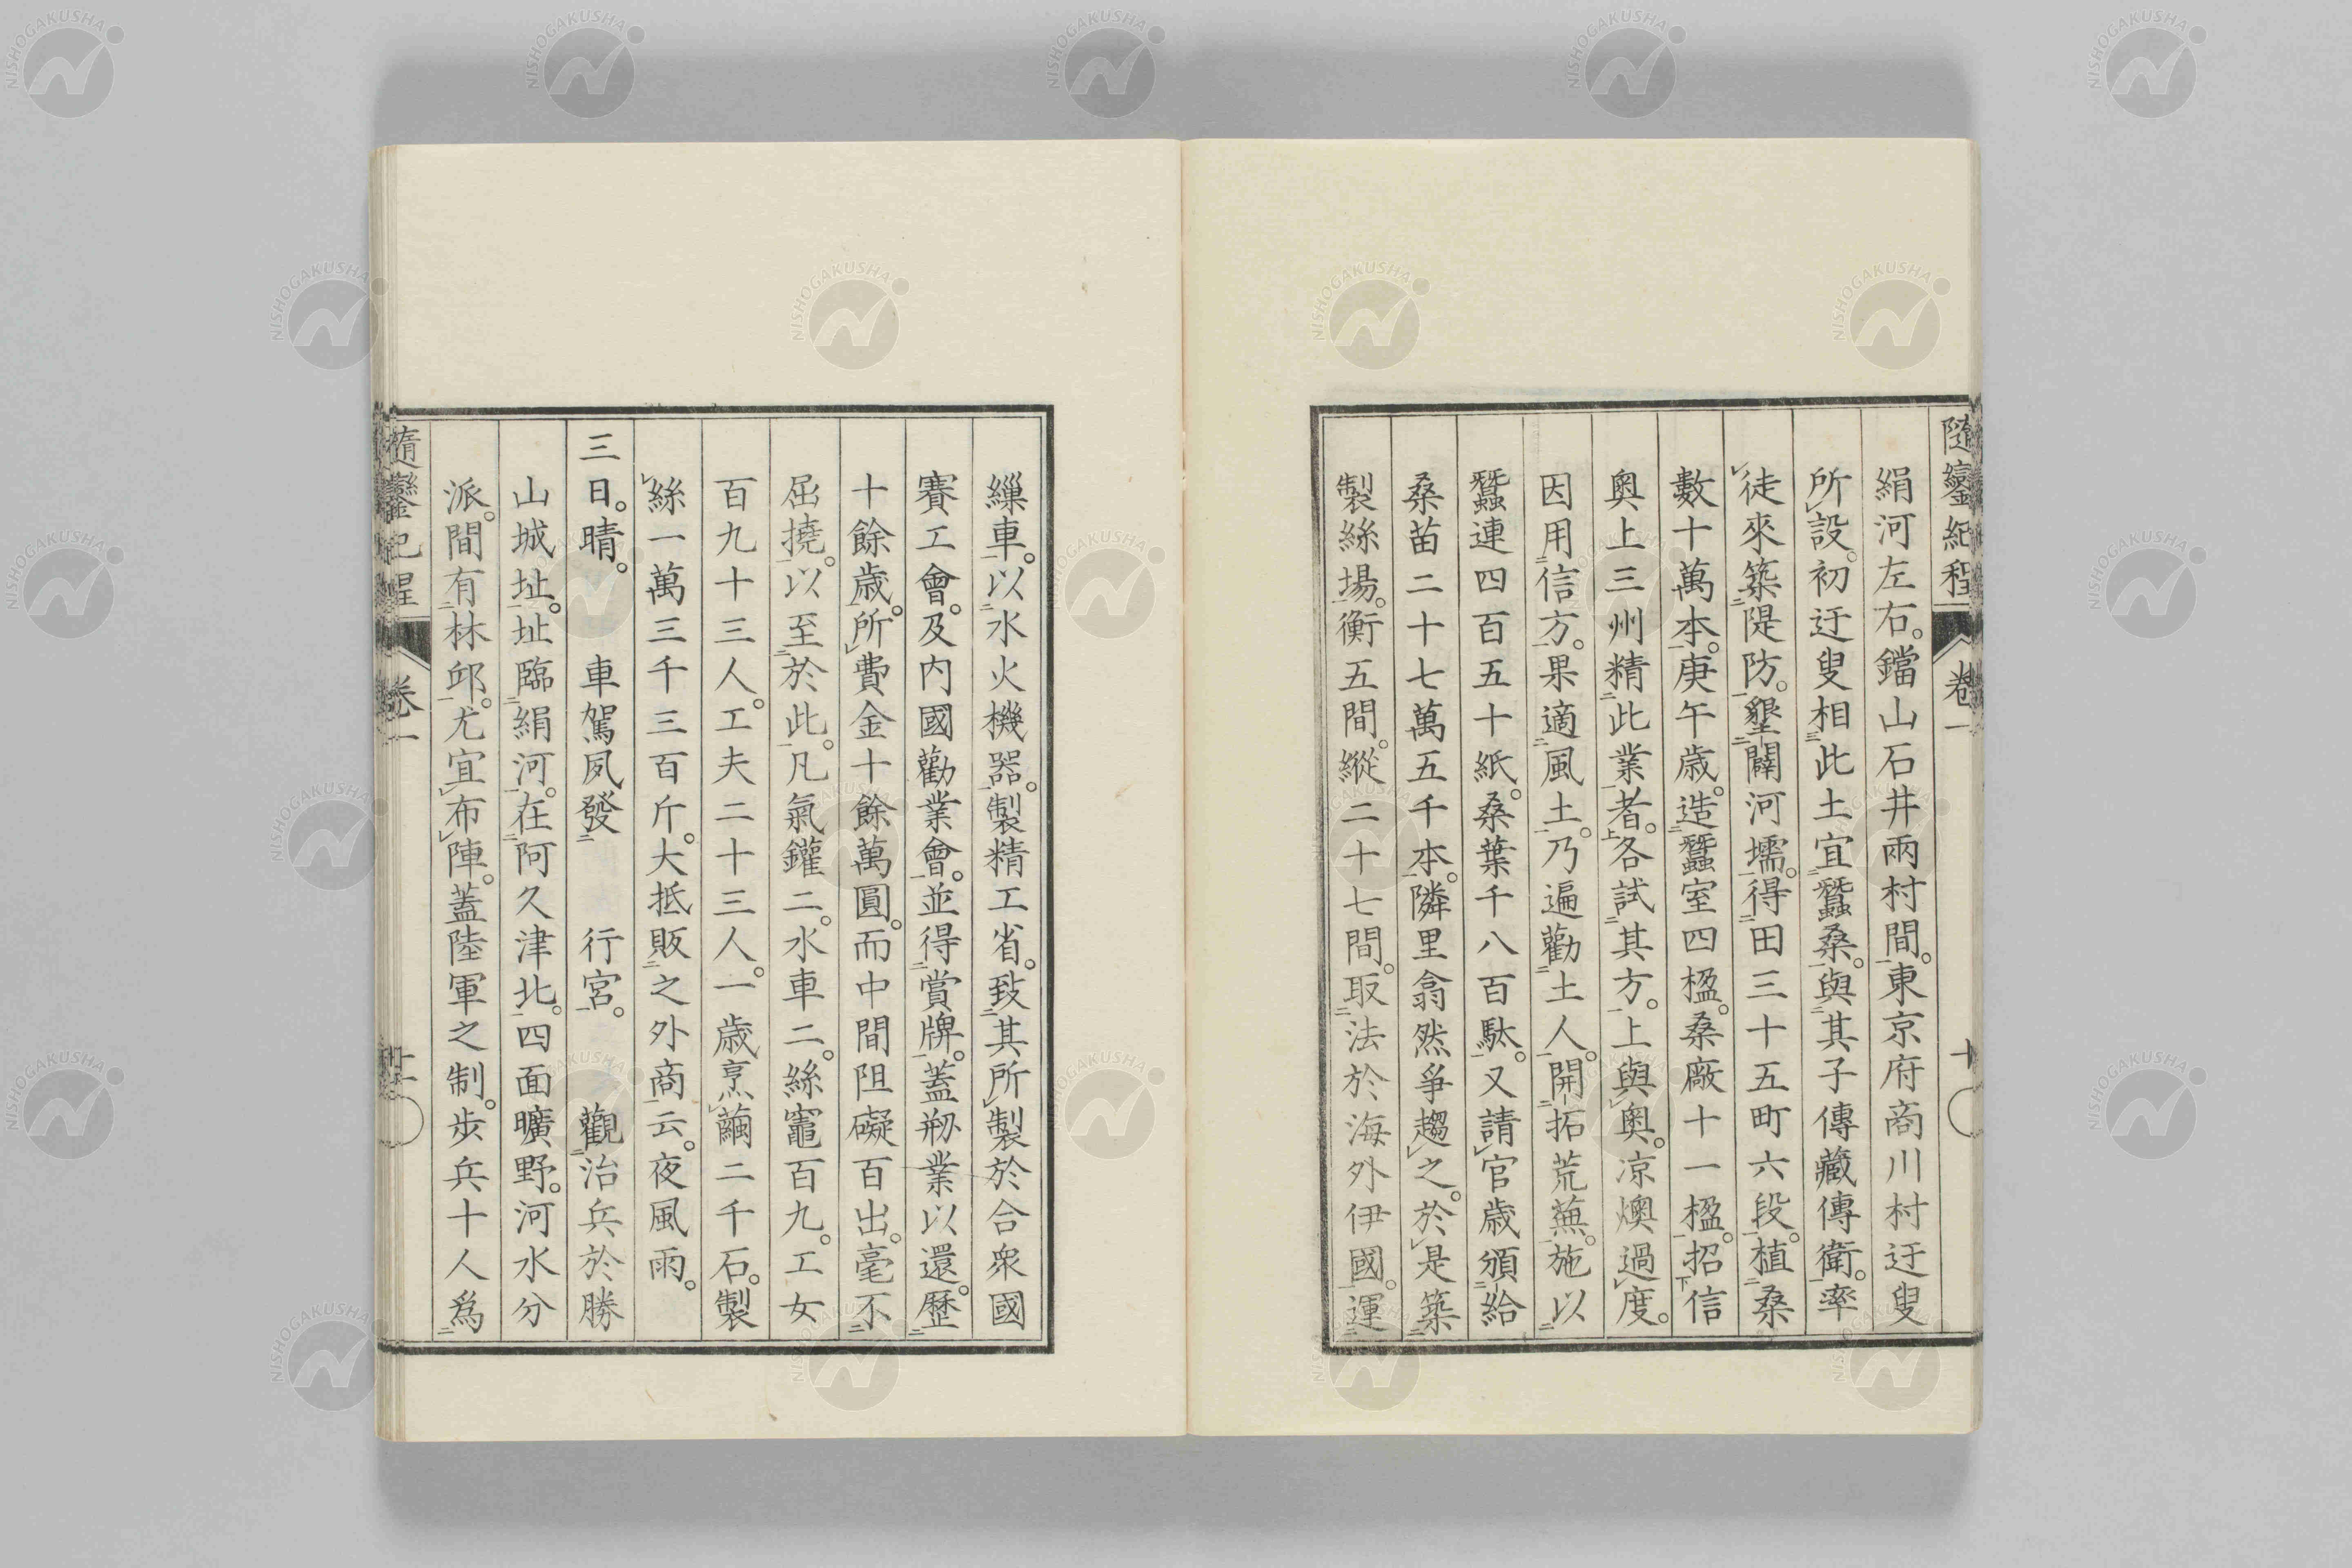 隨鑾紀程 卷一 十
絹河左右。鐺山石井兩村間。東京府商川村迂叟
所設。初迂叟相此土宜蠶桑。與其子傳藏傳衛。率
徒來築隄防。墾闢河壖。得田三十五町六段。植桑
數十萬本。庚午歲。造蠶室四楹。桑廠十一楹。招信
奧上三州精此業者。各試其方。上與奧。凉燠過度。
因用信方。果適風土。乃遍勸土人。開拓荒蕪。施以
蠶連四百五十紙。桑葉千八百駄。又請官歲頒給
桑苗二十七萬五千本。隣里翕然爭趨之。於是築
製絲場。衡五間。縱二十七間。取法於海外伊國。運
繅車。以水火機器。製精工省。致其所製於合衆國
賽工會。及内國勸業會。並得賞牌。蓋剏業以還。歷
十餘歲。所費金十餘萬圓。而中間阻礙百出。毫不
屈撓。以至於此。凡氣鑵二。水車二。絲竈百九。工女
百九十三人。工夫二十三人。一歲烹繭二千石。製
絲一萬三千三百斤。大抵販之外商云。夜風雨。
三日。晴。 車駕夙發 行宮。 觀治兵於勝
山城址。址臨絹河。在阿久津北。四面曠野。河水分
派。間有林邱。尤宜布陣。蓋陸軍之制。步兵十人爲
隨鑾紀程 卷一
NISHOGAKUSHA